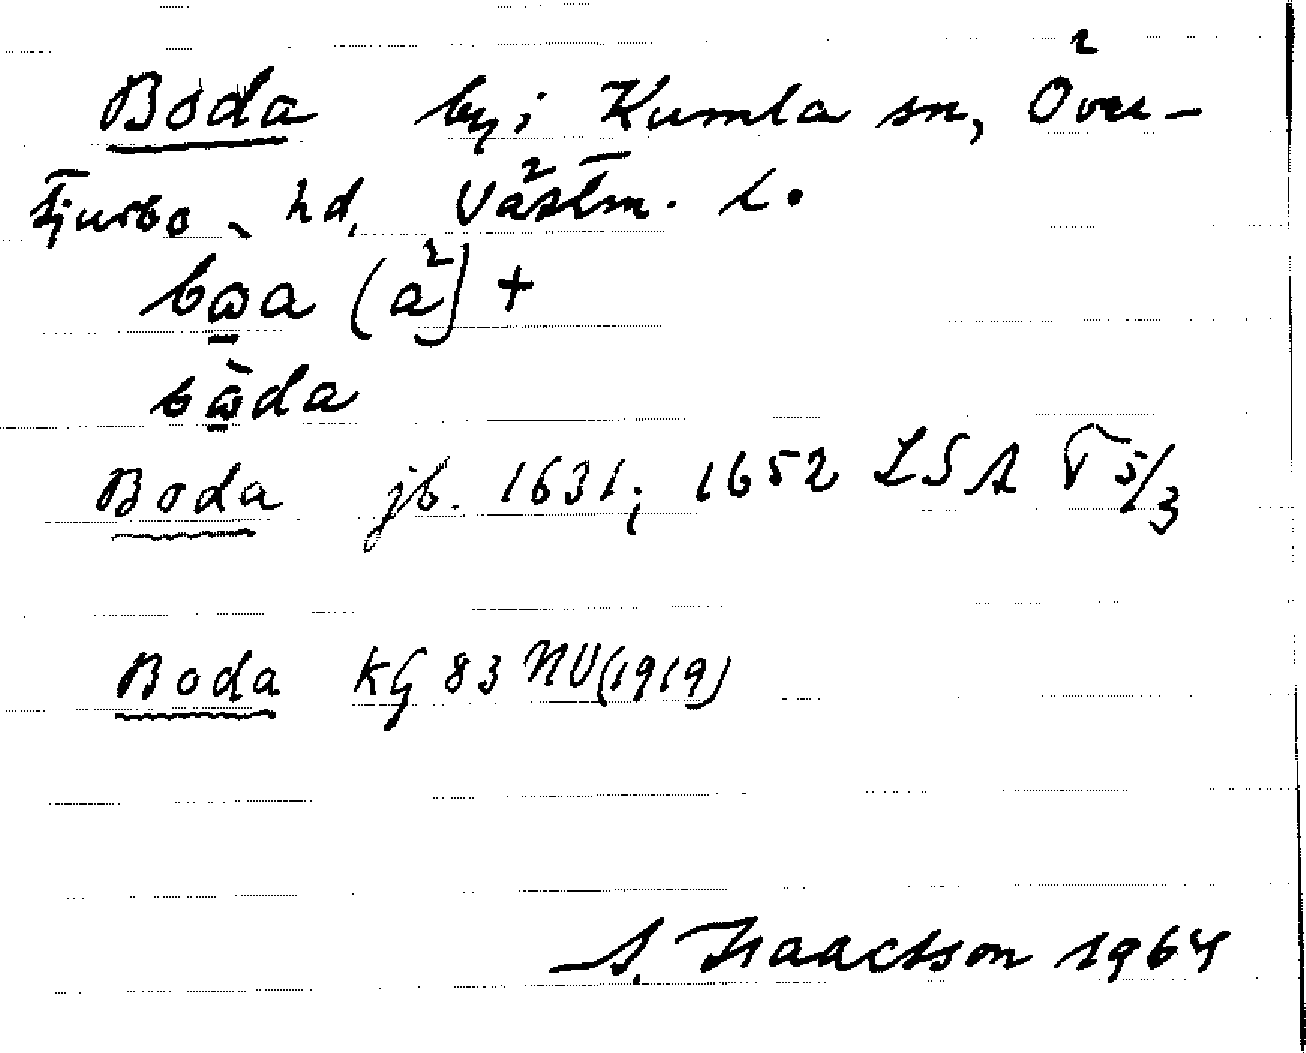 Boda by i Kumla sn, Över-
tjurbo hd, Västm. l.
bωa (ä) +
bὼda
Boda jb. 1631; 1652 LSA T 5/3
Boda KG 83 NV (1919)
S. Isaacsson 1964